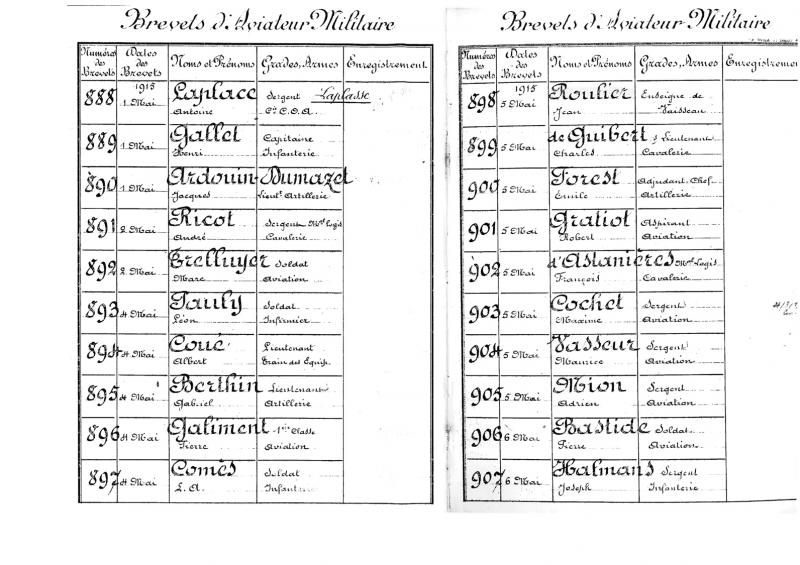 Brevets d'Aviateur Militaire
Numéros des Brevets Dates des Brevets Noms et Prénoms Grades, Armes Enregistrement
1915
888 1 Mai Laplace Sergent Laplasse
Antoine Cie C.O.A.
889 1 Mai Gallet Capitaine
Henri Infanterie
890 1 Mai Ardouin-Dumazet
Jacques Lieut^t Artillerie
891 2 Mai Ricot Sergent M^al Logis
André Cavalerie
892 2 Mai Trelluyer Soldat
Marc Aviation
893 4 Mai Pauly Soldat
Léon Infirmier
894 4 Mai Coué Lieutenant
Albert Train des Equip.
895 4 Mai Berthin Lieutenant
Gabriel Artillerie
896 4 Mai Galiment 1ère Classe
Pierre Aviation
897 4 Mai Comès Soldat
L. A. Infant
Brevets d'Aviateur Militaire
Numéros des Brevets Dates des Brevets Noms et Prénoms Grades, Armes Enregistrement
1915
898 5 Mai Roulier Enseigne de
Jean Vaisseau
899 5 Mai de Guibert s Lieutenant
Charles Cavalerie
900 5 Mai Forest Adjudant Chef
Emile Artillerie
901 5 Mai Gratiot Aspirant
Robert Aviation
902 5 Mai d'Astanières M^al Logis
François Cavalerie
903 5 Mai Cochet Sergent
Maxime Aviation
904 5 Mai Vasseur Sergent
Maurice Aviation
905 5 Mai Mion Sergent
Adrien Aviation
906 6 Mai Bastide Soldat
Pierre Aviation
907 6 Mai Halmans Sergent
Joseph Infanterie